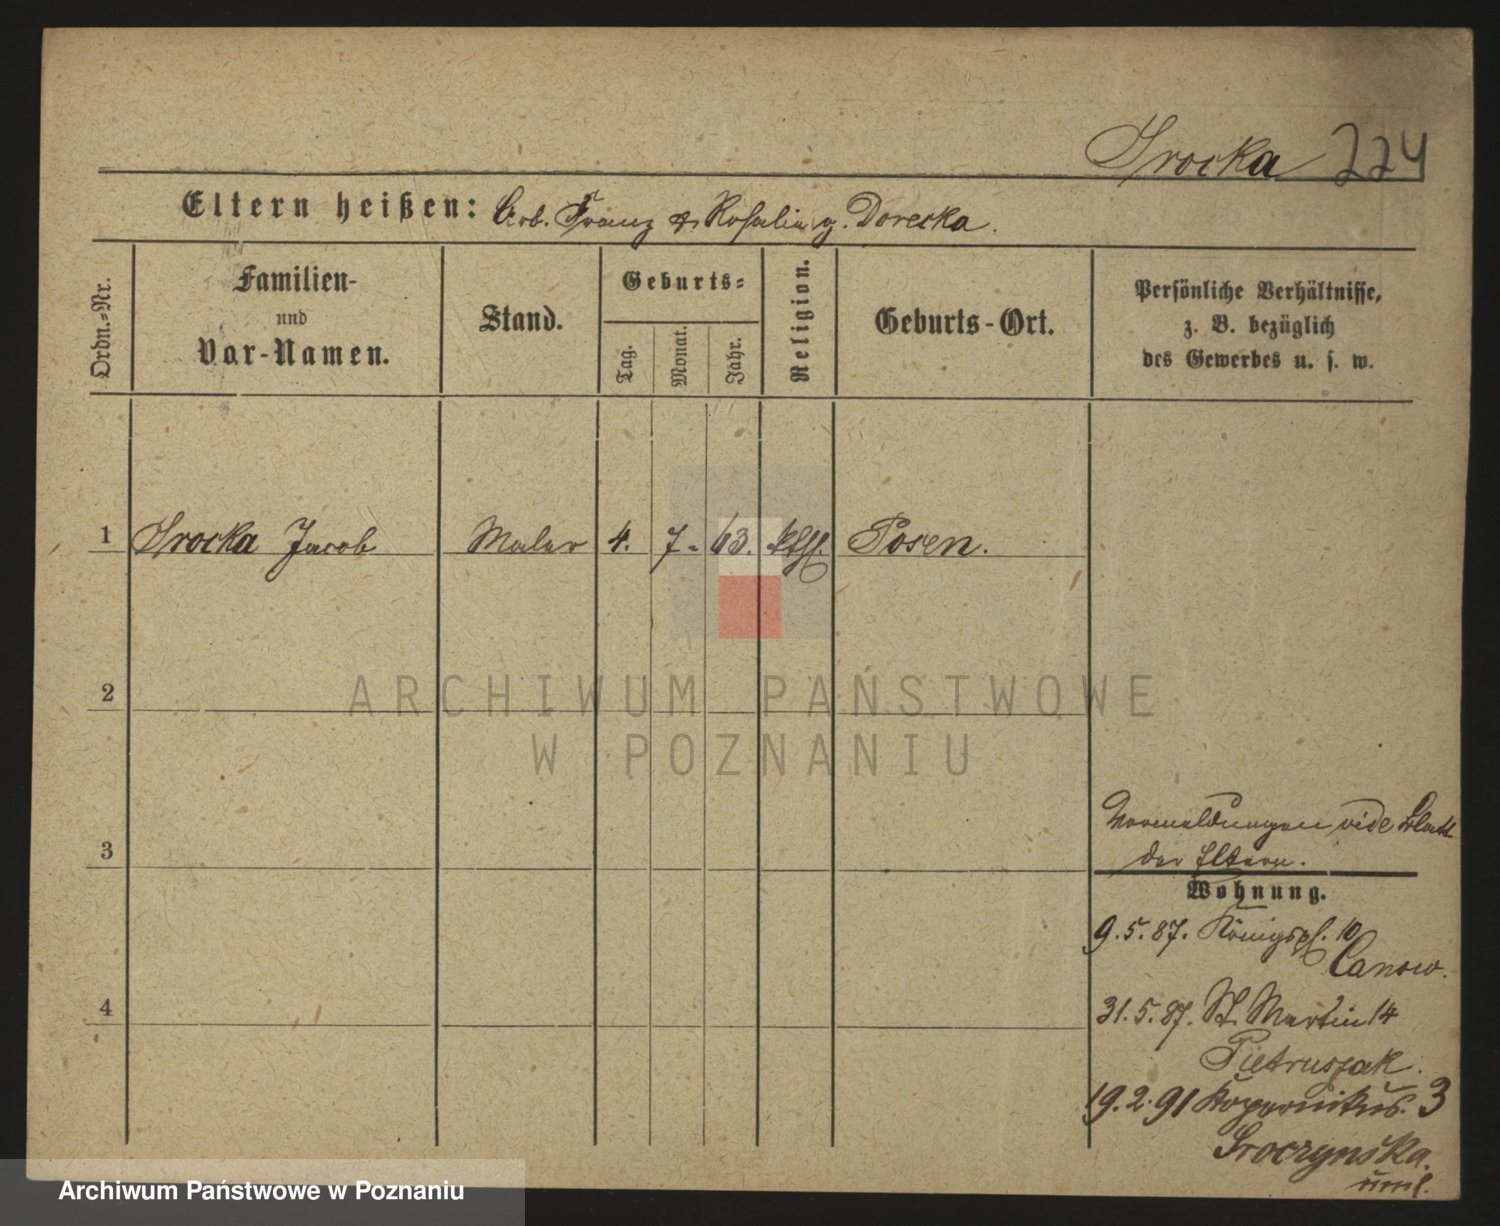 Srocka 224
Eltern heißen: Arb. Franz & Rosalia g. Dorecka.
Ordn.-Nr.
Familien-
und
Vor-Namen.
Stand.
Geburts-
Tag.
Monat.
Jahr.
Religion.
Geburts-Ort.
Persönliche Verhältnisse,
z. B. bezüglich
des Gewerbes u. s. w.
1 Srocka Jacob Maler 4. 7. 63. kth. Posen.
2
3
4
ARCHIWUM PAŃSTWOWE
W POZNANIU
Vormeldungen vide Blatt
der Eltern.
Wohnung.
9.5.87. Königspl. 10
Canow.
31.5.87. St. Martin 14
Pietruszak.
19.2.91 Kopernikus. 3
Sroczynska.
Archiwum Państwowe w Poznaniu